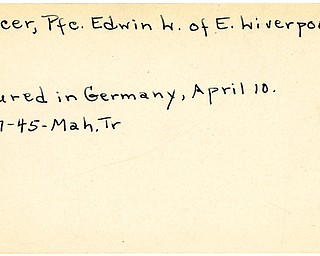 cer, Pfc. Edwin W. of E. Liverpoo
ured in Germany, April 10.
7-45-Mah. Tr